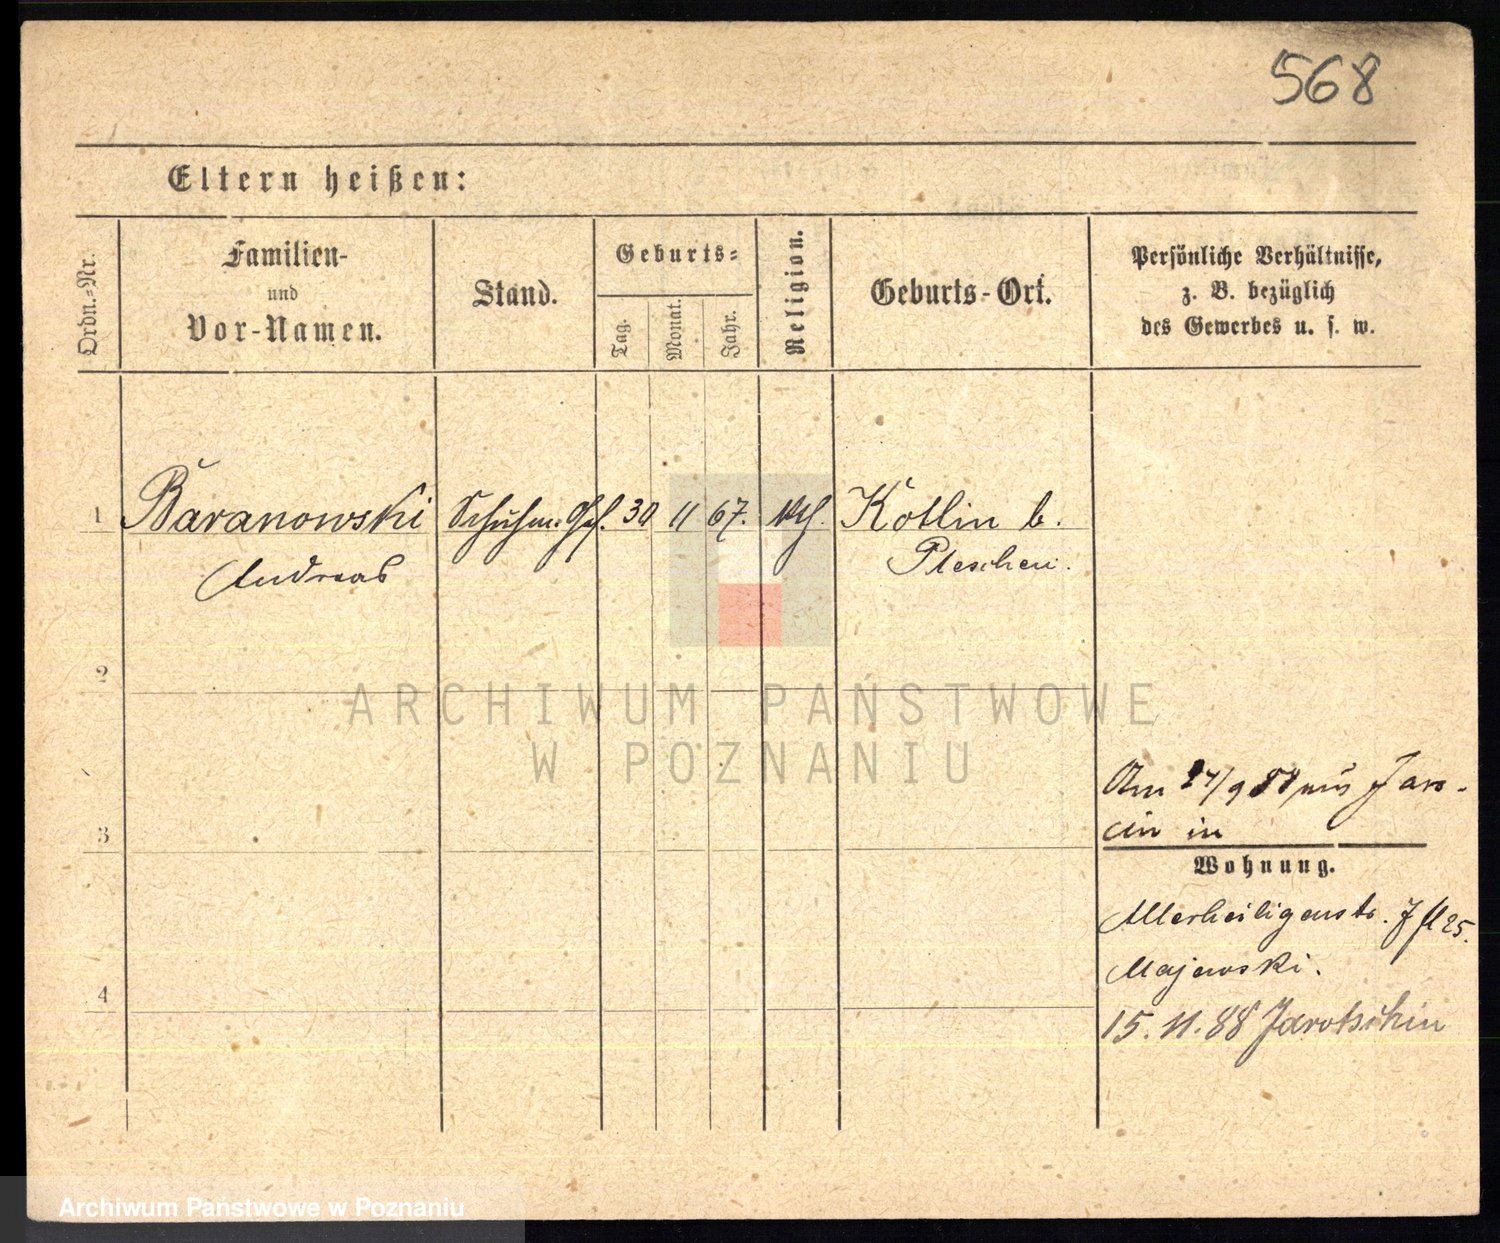 568
Eltern heißen:
Ordn.-Nr.
Familien-
und
Vor-Namen.
Stand.
Geburts-
Tag.
Monat.
Jahr.
Religion.
Geburts-Ort.
Persönliche Verhältnisse,
z. B. bezüglich
des Gewerbes u. s. w.
1 Baranowski Schuhm. Ges. 30 11 67. kth. Kotlin b.
Andreas Pleschen.
2
ARCHIWUM PAŃSTWOWE
W POZNANIU
3
4
Am 24/9 88 aus Jaro-
cin in
Wohnung.
Allerheiligenstr. 25.
Majewski.
15. 11. 88 Jarotschin
Archiwum Państwowe w Poznaniu